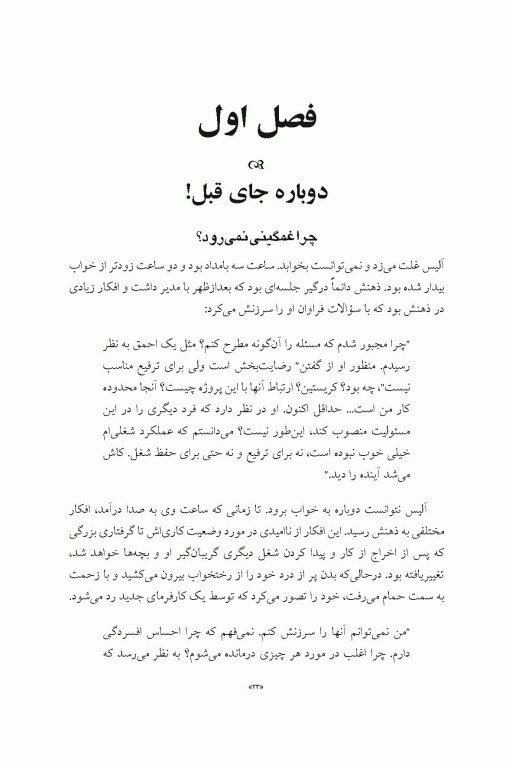 فصل اول
دوباره جای قبل!
چرا غمگینی نمی‌رود؟
آلیس غلت می‌زد و نمی‌توانست بخوابد. ساعت سه بامداد بود و دو ساعت زودتر از خواب
بیدار شده بود. ذهنش دائماً درگیر جلسه‌ای بود که بعدازظهر با مدیر داشت و افکار زیادی
در ذهنش بود که با سؤالات فراوان او را سرزنش می‌کرد:
"چرا مجبور شدم که مسئله را آن‌گونه مطرح کنم؟ مثل یک احمق به نظر
رسیدم. منظور او از گفتن" رضایت‌بخش است ولی برای ترفیع مناسب
نیست"، چه بود؟ کریستین؟ ارتباط آنها با این پروژه چیست؟ آنجا محدوده
کار من است... حداقل اکنون. او در نظر دارد که فرد دیگری را در این
مسئولیت منصوب کند، این‌طور نیست؟ می‌دانستم که عملکرد شغلی‌ام
خیلی خوب نبوده است، نه برای ترفیع و نه حتی برای حفظ شغل. کاش
می‌شد آینده را دید."
آلیس نتوانست دوباره به خواب برود. تا زمانی که ساعت وی به صدا درآمد، افکار
مختلفی به ذهنش رسید. این افکار از ناامیدی در مورد وضعیت کاری‌اش تا گرفتاری بزرگی
که پس از اخراج از کار و پیدا کردن شغل دیگری گریبان‌گیر او و بچه‌ها خواهد شد،
تغییریافته بود. درحالی‌که بدن پر از درد خود را از رختخواب بیرون می‌کشید و با زحمت
به سمت حمام می‌رفت، خود را تصور می‌کرد که توسط یک کارفرمای جدید رد می‌شود.
"من نمی‌توانم آنها را سرزنش کنم. نمی‌فهم که چرا احساس افسردگی
دارم. چرا اغلب در مورد هر چیزی درمانده می‌شوم؟ به نظر می‌رسد که
«۲۳»